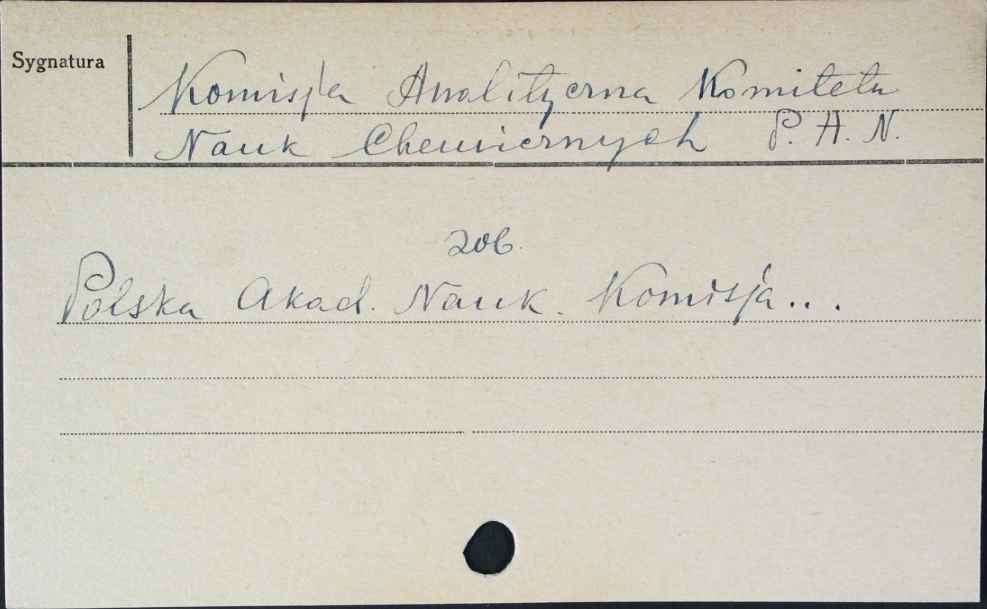 Sygnatura
Komisja Analityczna Komitetu
Nauk Chemicznych P. A. N.
zob.
Polska Akad. Nauk. Komisja...